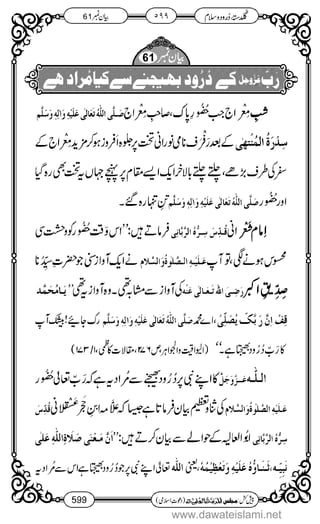 بیان نمبر 61 ۵۹۹ گلدستہ دُرود وسلام
بیان نمبر 61
رَبّ عَزَّوَجَلَّ کے دُرُود بھیجنے سے کیا مُراد ھے
شبِ مِعْراج جب حُضُورِ پاک، صاحبِ مِعْراج صَلَّی اللّٰہُ تَعَالٰی عَلَیْہِ وَاٰلِہٖ وَسَلَّم
سِدْرَۃُ الْمُنْتَہٰی کے بعد رَفْرَف نامی نورانی تَخْت پر جلوہ افروز ہوکر مزید مِعْراج کے
سفر کی طرف بڑھے، چلتے چلتے بالآخر ایک ایسے مقام پر پہنچے جہاں یہ تخت بھی رہ گیا
اور حُضُور صَلَّی اللّٰہُ تَعَالٰی عَلَیْہِ وَاٰلِہٖ وَسَلَّم تنِ تنہا رہ گئے۔
اِمام شَعْرانی قُدِّسَ سِرُّہُ الرَّبَّانِی فرماتے ہیں: ’’اس وَقْت حُضُور کو وَحْشت سی
محسوس ہونے لگی، تو آپ عَلَیْہِ الصَّلٰوۃُ وَالسَّلَام نے ایک آواز سنی جو حضرتِ سَیِّدُنا
صِدِّیقِ اکبر رَضِیَ اللّٰہُ تَعَالٰی عَنْہُ کی آواز سے مشابہ تھی۔ وہ آواز یہ تھی ’’یَامُحَمَّدُ
قِفْ اِنَّ رَبَّکَ یُصَلِّیْ، اے محمد صَلَّی اللّٰہُ تَعَالٰی عَلَیْہِ وَاٰلِہٖ وَسَلَّم رُک جائیے! بیشک آپ
کا رَبّ دُرُود بھیجتا ہے۔‘‘ (الیواقیت والجواہر، ص۲۷۶، مقالات کاظمی، ۱/۱۷۳)
اللّٰہ عَزَّوَجَلَّ کا اپنے نبی پر دُرُود بھیجنے سے مُراد یہ ہے کہ رَبّ تعالیٰ حُضُور
عَلَیْہِ الصَّلٰوۃُ وَالسَّلَام کی ثَنا و تعظیم بیان فرماتا ہے جیسا کہ علّامہ ابنِ حَجَر عَسْقَلانی قُدِّسَ
سِرُّہُ الرَّبَّانِی ابُو العالیہ کے حوالے سے بیان کرتے ہیں: ’’اَنَّ مَعْنٰی صَلَاۃِ اللّٰہِ عَلٰی
نَبِیِّہٖ ثَنَاؤُہُ عَلَیْہِ وَتَعْظِیْمُہُ، یعنی اللّٰہ تعالیٰ اپنے نبی پر جو دُرُود بھیجتا ہے اس سے مُراد یہ
599 (دعوتِ اسلامی)
www.dawateislami.net